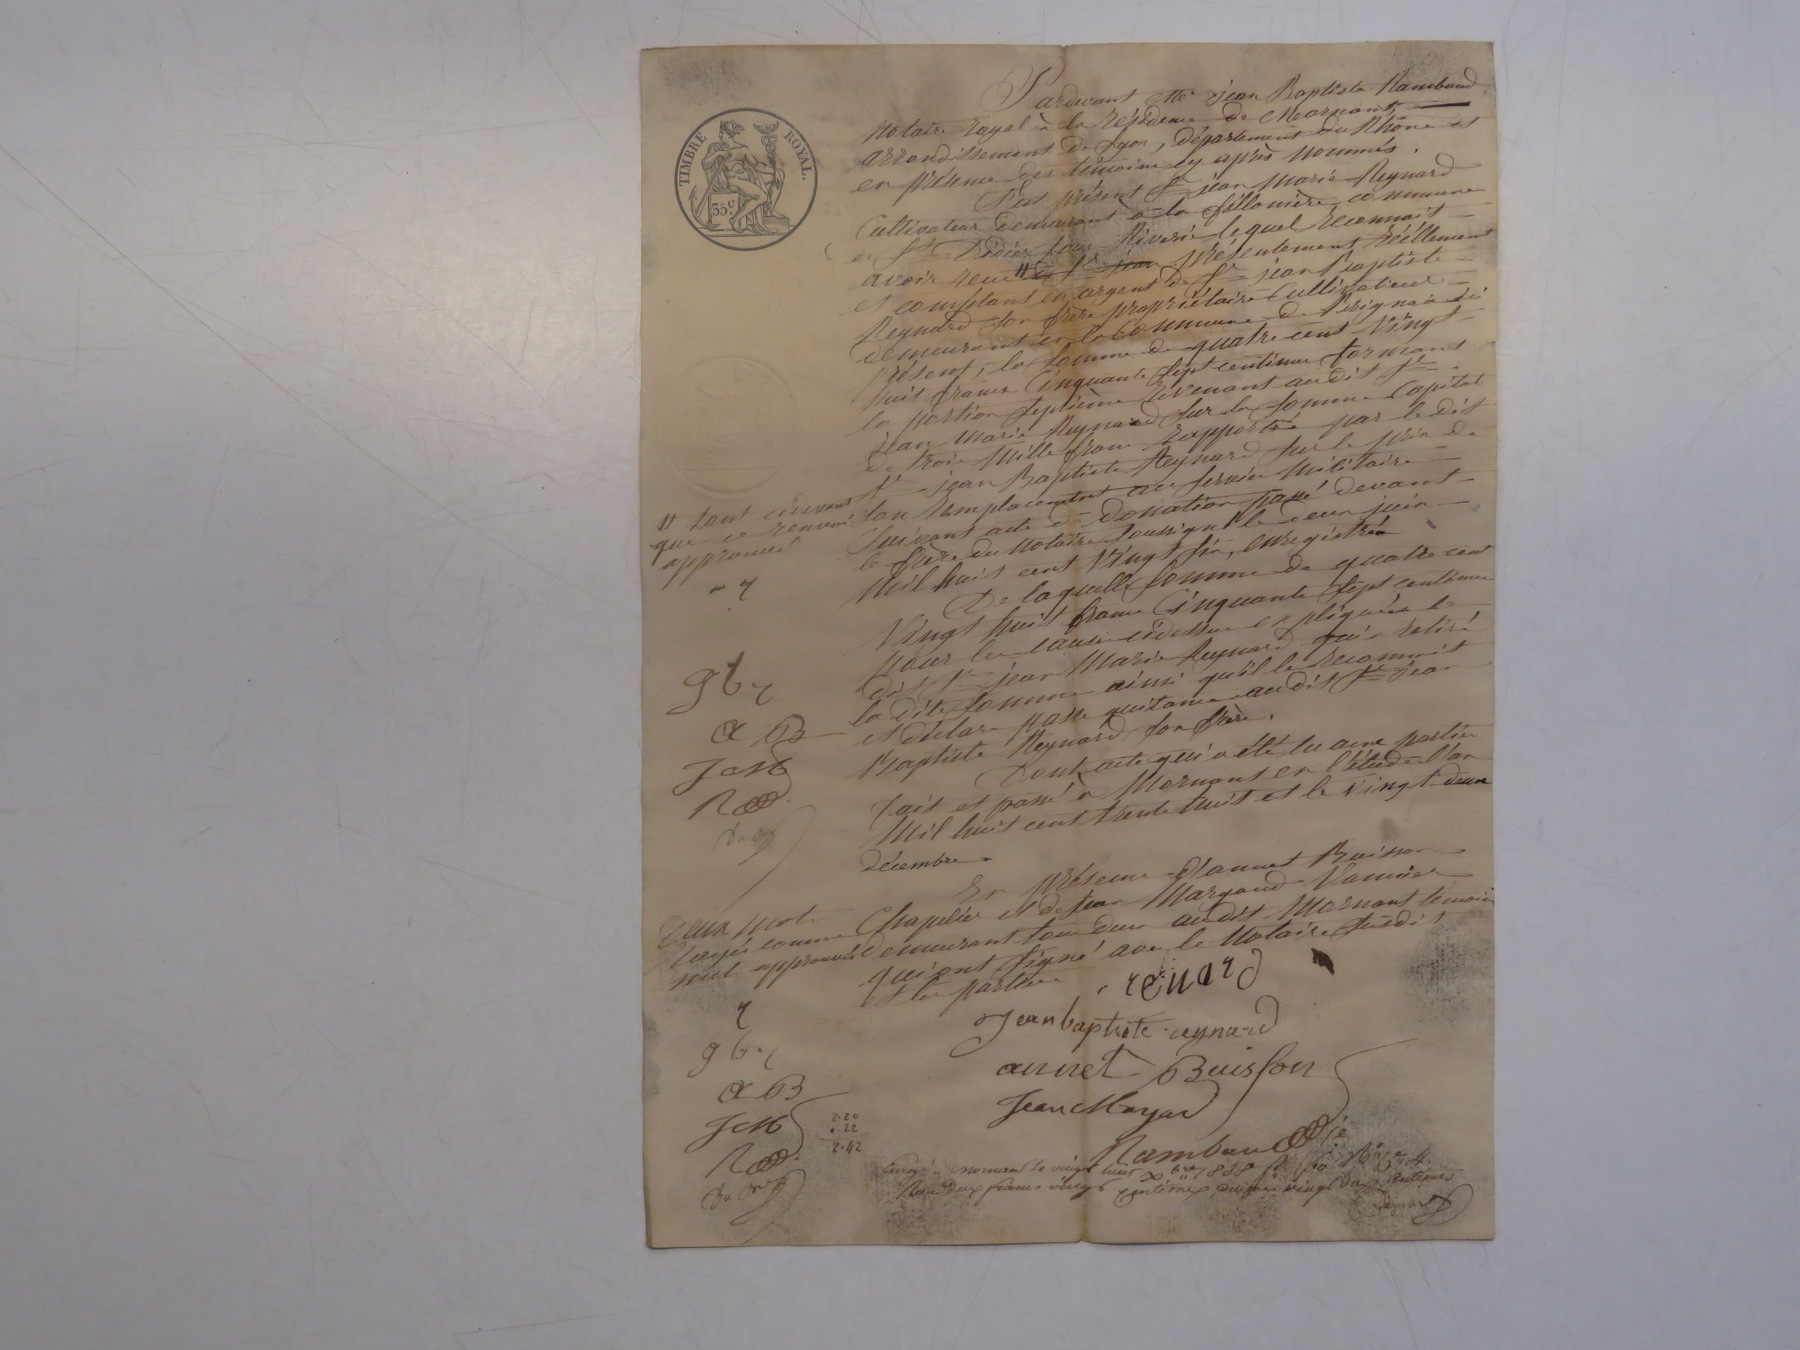 Pardevant Me jean Baptiste Rambaud
Notaire royal à la résidence de Mornant
arrondissement de Lyon, département du Rhône et
en présence des témoins cy après nommés.
S'est présent Sr jean Marie Reynard
Cultivateur demeurant à la fillonière, commune
de St Didier sous Riverie lequel reconnait
avoir reçu " le Sr jean présentement réellement
et comptant en argent de Sr jean Baptiste
Reynard son frère propriétaire Cultivateur
demeurant en la Commune de ici
présent, la somme de quatre cent vingt
huit francs Cinquante sept centimes formant
la portion septième revenant audit Sr
Jean Marie Reynard sur la somme capital
de trois mille francs rapportée par le dit
Sr jean Baptiste Reynard sur le prix de
son remplacement au service militaire
suivant acte de donation passé devant
le frère du Notaire soussigné le deux juin
Mil huit cent vingt six, enregistrée
De laquelle somme de quatre cent
Vingt huit francs Cinquante sept centimes
pour les causes cidessus expliquées le
dit Sr jean Marie Reynard qui a retiré
la dite somme ainsi qu'il le reconnait
et déclare passe quitance audit Sr jean
Baptiste Reynard son frère.
Dont acte qui a été lu aux parties
fait et passé à Mornant en l'étude l'an
Mil huit cent trente huit et le vingt deux
décembre
En présence d'annet Buisson
Chapelier et de Jean Margand
demeurant tous deux audit Mornant témoins
qui ont signé avec le Notaire susdit
et les parties
renard
Jean baptiste reynard
annet Buisson
Jean
Rambaud
à mornant le vingt huit Xbre 1838
deux francs vingt centimes vingt deux centimes
TIMBRE ROYAL.
35c
" tant cidevant
que ce renvoi
approuvé
r
gbr
a B
JcM
R
Deux mots
rayés comme
nuls approuvés
r
gbr
a B
JcM
R
2.20
.22
2.42